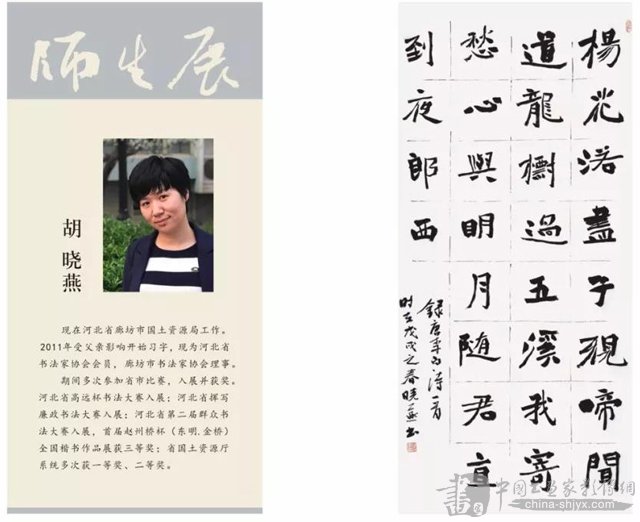 师生展
胡晓燕
现在河北省廊坊市国土资源局工作。
2011年受父亲影响开始习字，现为河北省
书法家协会会员，廊坊市书法家协会理事。
期间多次参加省市比赛，入展并获奖。
河北省高远杯书法大赛入展；河北省挥写
廉政书法大赛入展；河北省第二届群众书
法大赛入展，首届赵州桥杯（东明.金桥）
全国楷书作品展获三等奖；省国土资源厅
系统多次获一等奖、二等奖。
楊花落盡子規啼聞
道龍樹過五溪我寄
愁心與明月随君直
到夜郎西
録唐李白诗一首
时在戊戌之春晓燕书
書
中國书画家影像網
china-shjyx.com